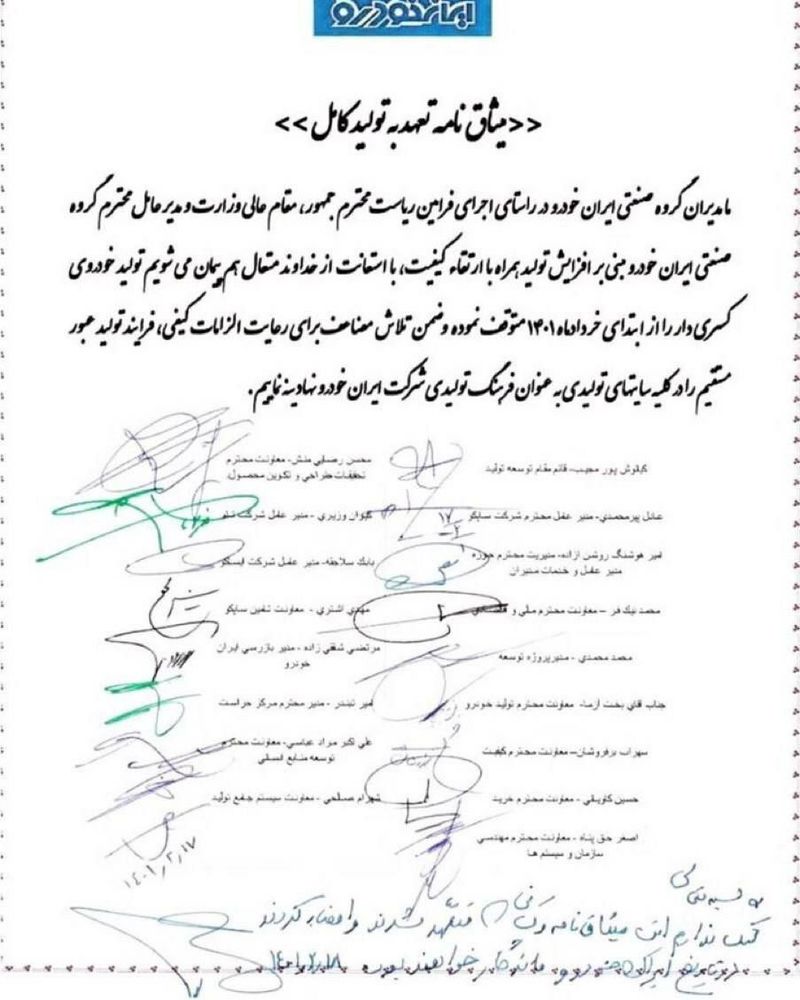 ایران خودرو
<<میثاق نامه تعهد به تولید کامل>>
ما مدیران گروه صنعتی ایران خودرو در راستای اجرای فرامین ریاست محترم جمهور، مقام عالی وزارت و مدیر عامل محترم گروه
صنعتی ایران خودرو مبنی بر افزایش تولید همراه با ارتقاء کیفیت، با استعانت از خداوند متعال هم پیمان می شویم تولید خودروی
کسری دار را از ابتدای خرداد ماه ۱۴۰۱ متوقف نموده و ضمن تلاش مضاعف برای رعایت الزامات کیفی، فرایند تولید عبور
مستقیم را در کلیه سایتهای تولیدی به عنوان فرهنگ تولیدی شرکت ایران خودرو نهادینه نماییم.
کیانوش پور مجیب- قائم مقام توسعه تولید
محسن رضایی منش- معاونت محترم
تحقیقات طراحی و تکوین محصول
عادل پیرمحمدی- مدیر عامل محترم شرکت ساپکو
کیوان وزیری - مدیر عامل شرکت
امیر هوشنگ روشن زاده- مدیریت محترم حوزه
مدیر عامل و خدمات مدیران
بابک سلاجقه- مدیر عامل شرکت ایسکو
محمد نیک فر - معاونت محترم مالی و اقتصادی
مهدی اشتری - معاونت تامین ساپکو
محمد محمدی - مدیر پروژه توسعه
مرتضی شفیع زاده - مدیر بازرسی ایران
خودرو
جناب آقای بخت آزما- معاونت محترم تولید خودرو
امیر تبندر - مدیر محترم مرکز حراست
سهراب برفروشان- معاونت محترم کیفیت
علی اکبر مراد عباسی- معاونت محترم
توسعه منابع انسانی
حسین کاویانی - معاونت محترم خرید
شهرام صالحی - معاونت سیستم جامع تولید
اصغر حق پناه - معاونت محترم مهندسی
سازمان و سیستم ها
۱۴۰۱/۲/۱۷
شک ندارم این میثاق نامه و متعهد شدند و امضاء کردند
در تاریخ ایران خودرو ماندگار خواهند بود ۱۴۰۱/۲/۱۸